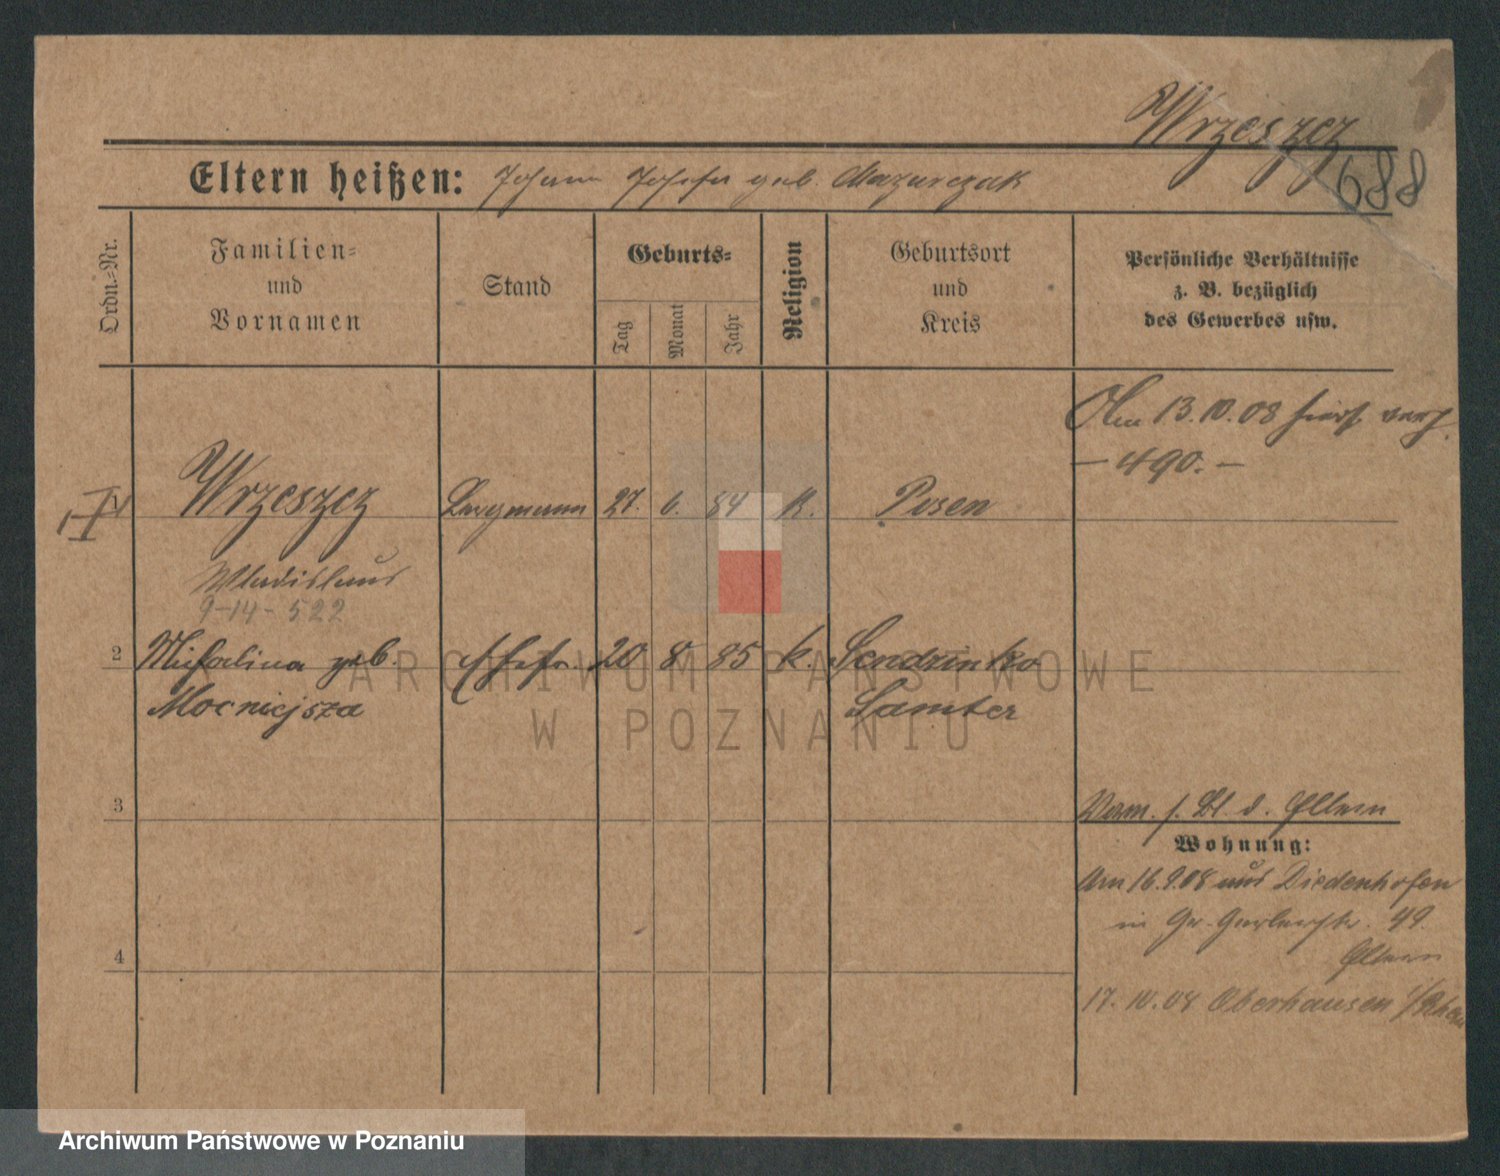 Wrzeszcz
688
Eltern heißen: Johann Josefa geb. Mazurczak
Ordn.-Nr.
Familien- und Vornamen
Stand
Geburts-
Tag
Monat
Jahr
Religion
Geburtsort und Kreis
Persönliche Verhältnisse
z. B. bezüglich
des Gewerbes usw.
Am 13.10.08 hierf. verh.
— 490. —
Wrzeszcz Bergmann 27. 6. 84 K. Posen
Wladislaus
9-14-522
2 Michalina geb. Ehefr. 20 8 85 k. Sendzinko
Mocniejsza Samter
ARCHIWUM PAŃSTWOWE
W POZNANIU
3
Verm. s. Bl. d. Eltern
Wohnung:
Am 16.9.08 aus Diedenhofen
in Gr. Gerberstr. 49.
Eltern
4
17.10.08 Oberhausen
Archiwum Państwowe w Poznaniu